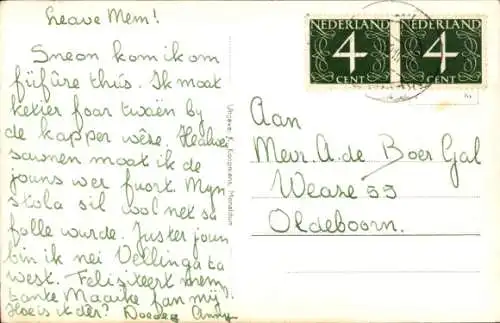 Leave Mem!
Sneon kom ik om
fiifûre thús. Ik moat
ketier foar twaën by
de kapper wêze. Healwei
sawnen moat ik de
jouns wer fuort. Myn
stola sil wol net sa
folle wurde. Juster joun
bin ik nei Vellinga ta
west. Felisiteert mem
tante Maaike fan my?
Hoe is it dêr? Doedeg Anny
Uitgave: K. Koopmans, Menaldum
NEDERLAND
4
CENT
NEDERLAND
4
CENT
Aan
Mevr. A. de Boer Gal
Weaze 55
Oldeboorn.